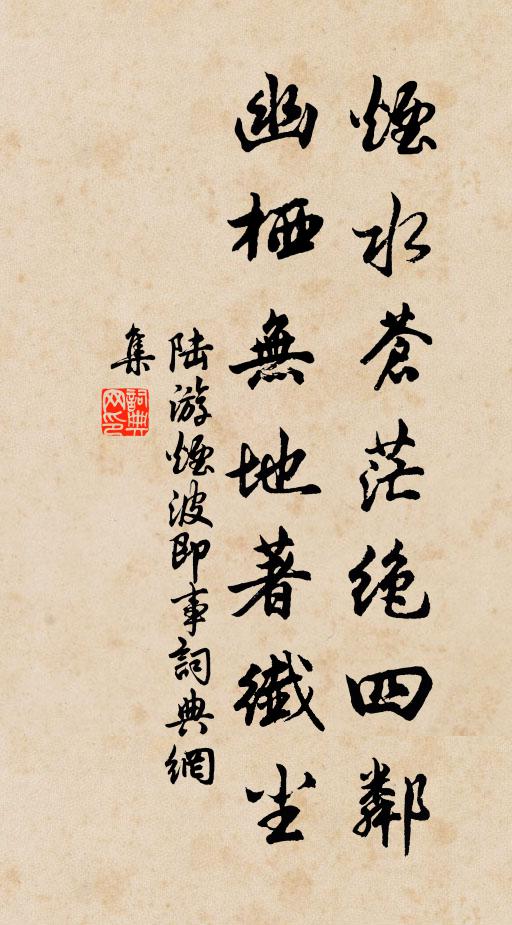 煙水蒼茫絶四鄰
幽栖無地著纖尘
陆游煙波即事詞典網
集
詞典
网印